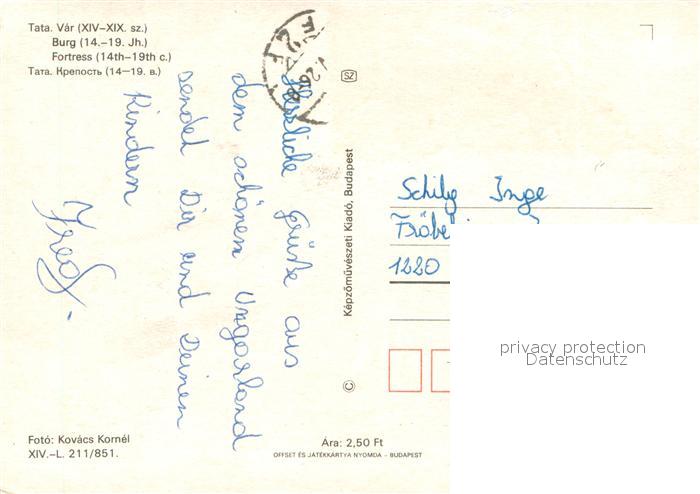 Tata. Vár (XIV–XIX. sz.)
Burg (14.–19. Jh.)
Fortress (14th–19th c.)
Тата. Крепость (14–19. в.)
Herzliche Grüße aus
dem schönen Ungarland
sendet Dir und Deinen
Kindern
Fred.-
Fotó: Kovács Kornél
XIV.–L. 211/851.
SZ
Képzőművészeti Kiadó, Budapest
©
Ára: 2,50 Ft
OFFSET ÉS JÁTÉKKÁRTYA NYOMDA – BUDAPEST
Schily Inge
Fröbel
1220
privacy protection
Datenschutz